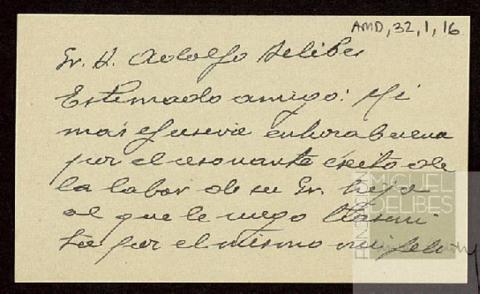 AMD, 32, 1, 16
Sr. D. Adolfo Delibes
Estimado amigo: Mi
más efusiva enhorabuena
por el resonante éxito de
la labor de su Sr. hijo
al que le ruego
por el mismo mi
FUNDACIÓN
MIGUEL
DELIBES